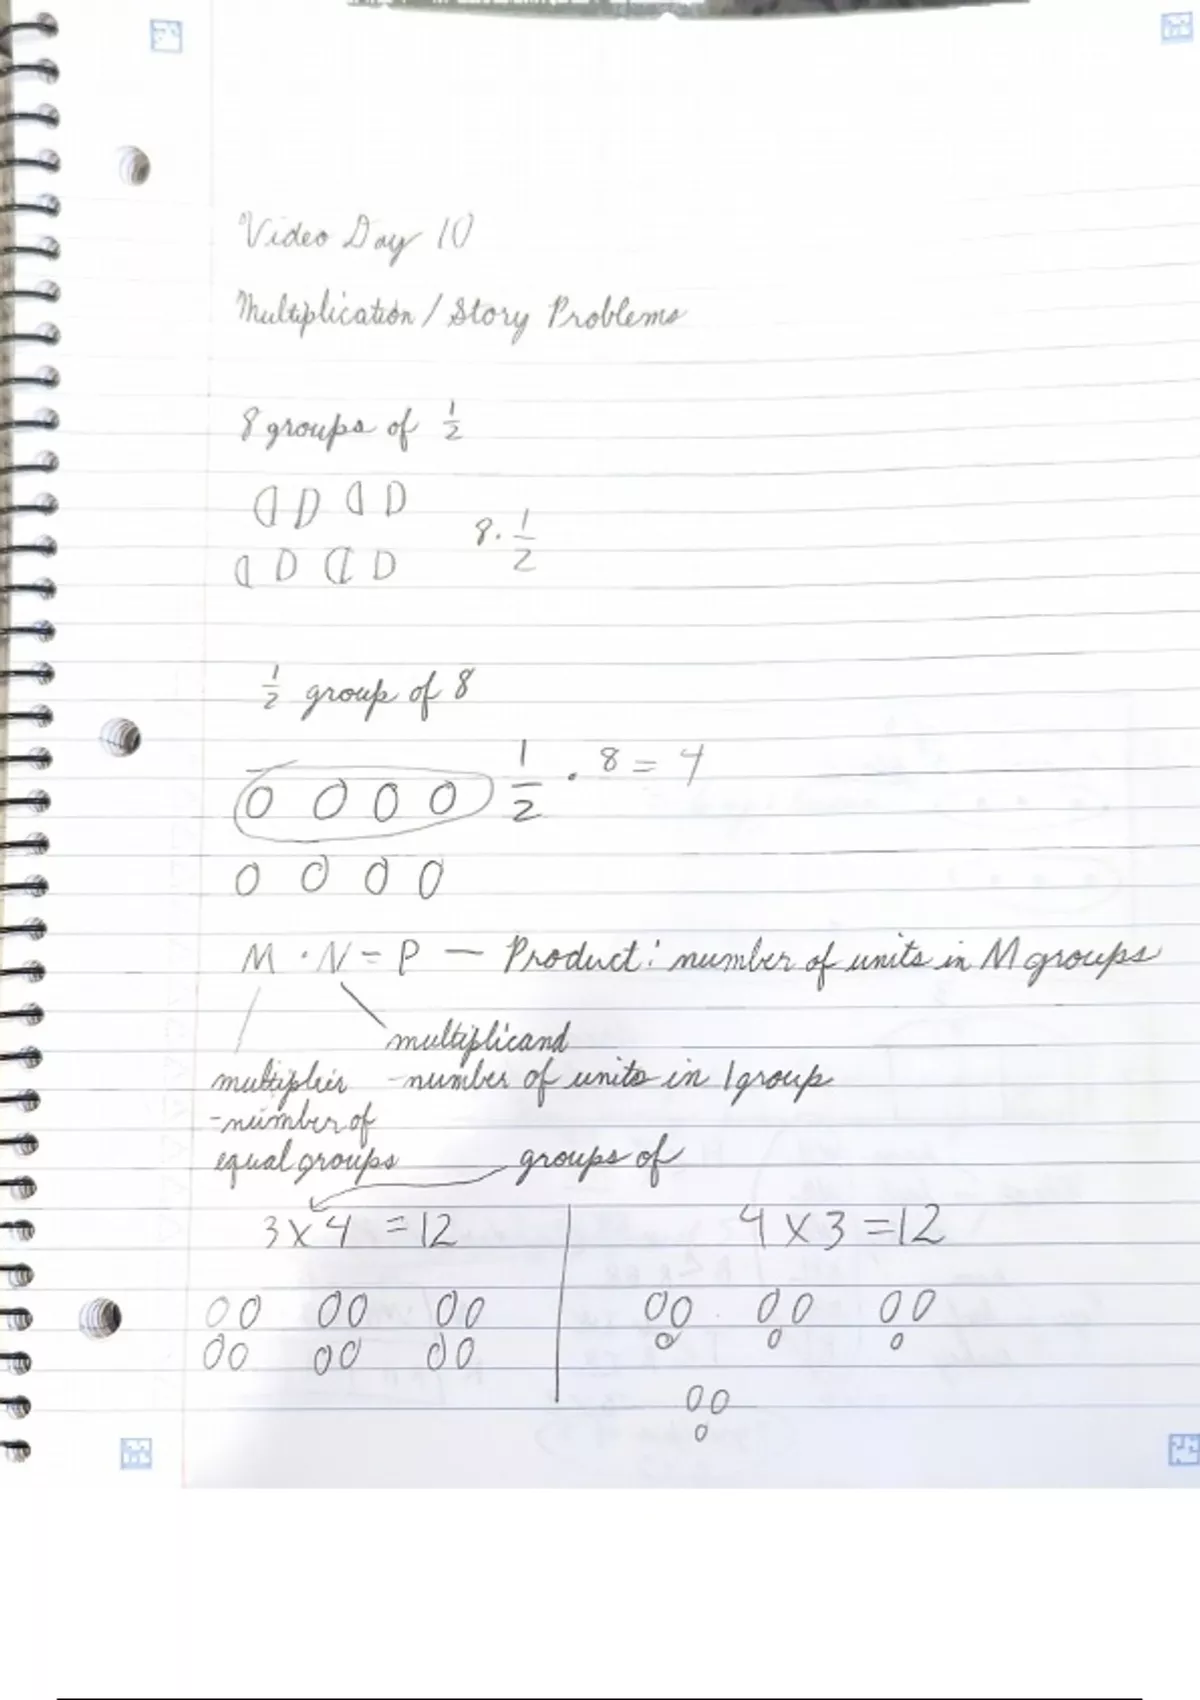 Video Day 10
Multiplication / Story Problems
8 groups of 1/2
8 · 1/2
1/2 group of 8
1/2 · 8 = 4
M · N = P — Product: number of units in M groups
multiplicand
multiplier - number of units in 1 group
- number of
equal groups groups of
3 x 4 = 12 4 x 3 = 12